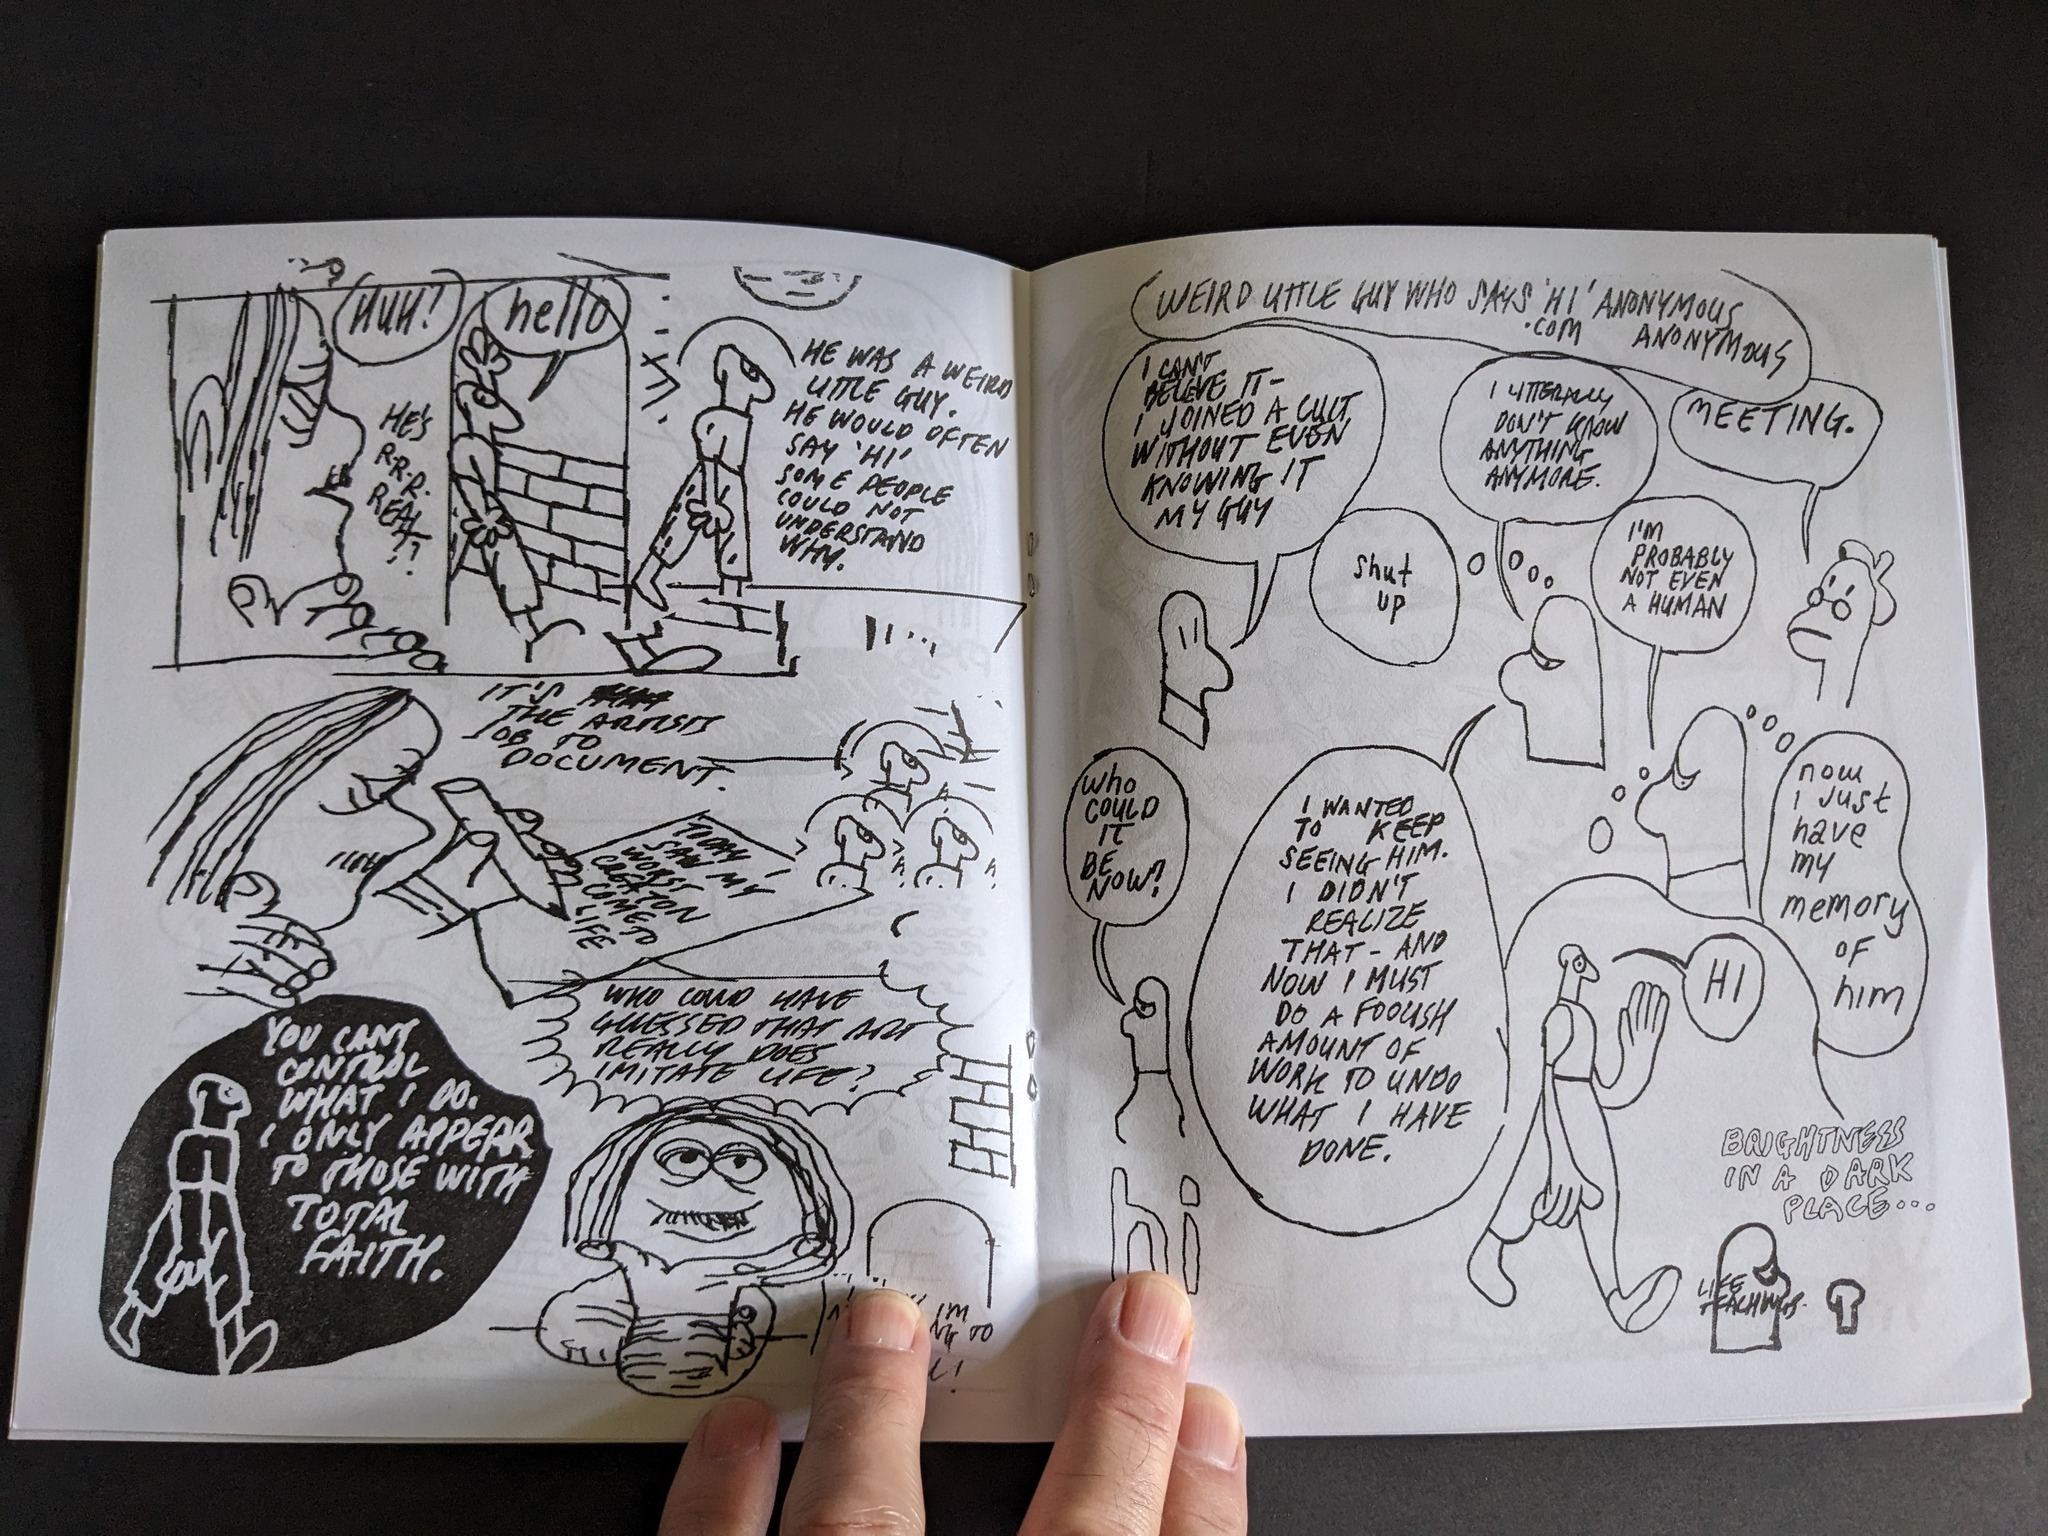 HUH?
hello
HE'S
R.R.R.
REAL
??
HE WAS A WEIRD
LITTLE GUY.
HE WOULD OFTEN
SAY 'HI'
SOME PEOPLE
COULD NOT
UNDERSTAND
WHY.
IT'S
THE ARTISTS
JOB TO
DOCUMENT.
TODAY I
SAW MY
WORST
CREATION
COME TO
LIFE
WHO COULD HAVE
GUESSED THAT ART
REALLY DOES
IMITATE LIFE?
YOU CAN'T
CONTROL
WHAT I DO.
I ONLY APPEAR
TO THOSE WITH
TOTAL
FAITH.
I'M
TO
WEIRD LITTLE GUY WHO SAYS 'HI' ANONYMOUS
.COM ANONYMOUS
MEETING.
I CAN'T
BELEVE IT-
I JOINED A CULT
WITHOUT EVEN
KNOWING IT
MY GUY
I LITTERALLY
DON'T KNOW
ANYTHING
ANYMORE.
Shut
up
I'M
PROBABLY
NOT EVEN
A HUMAN
who
COULD
IT
BE
NOW?
I WANTED
TO KEEP
SEEING HIM.
I DIDN'T
REALIZE
THAT - AND
NOW I MUST
DO A FOOLISH
AMOUNT OF
WORK TO UNDO
WHAT I HAVE
DONE.
now
i just
have
my
memory
OF
him
HI
hi
BRIGHTNESS
IN A DARK
PLACE...
LIFE
TEACHINGS.